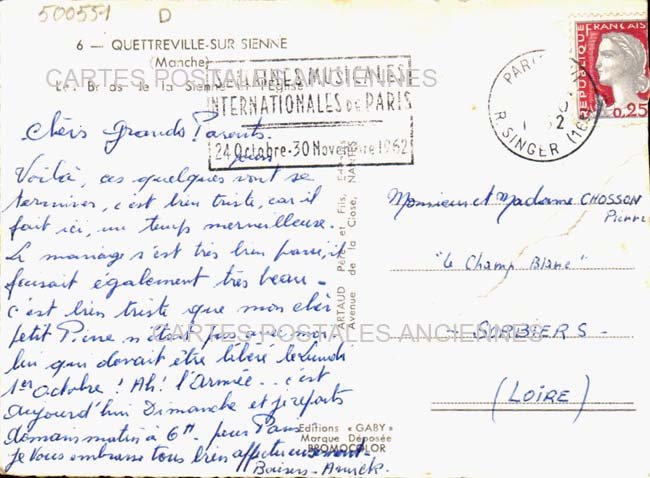 500551 D
6 — QUETTREVILLE-SUR SIENNE
(Manche)
Les Bords de la Sienne et l'Eglise
CARTES POSTALES ANCIENNES
SEMAINES MUSICALES
INTERNATIONALES DE PARIS
24 Octobre-30 Novembre 1962
PARIS
R. SINGER (16e)
REPUBLIQUE FRANCAISE
0,25
Chers Grands Parents.
jours
Voilà, ces quelques vont se
terminer, c'est bien triste, car il
fait ici, un temps merveilleuse.
Le mariage s'est très bien passé, il
faisait également très beau -
c'est bien triste que mon cher
petit Pierre n'était pas avec moi
lui qui devait être libéré le Lundi
1er Octobre ! Ah! l'armée.. c'est
aujourd'hui Dimanche et je repars
demain matin à 6H pour Paris
Je Vous embrasse tous bien affectueusement
Baisers - Annick.
ARTAUD Père et Fils, Editeurs
Avenue de la Close, NANTES
Editions « GABY »
Marque Déposée
BROMOCOLOR
Monsieur et Madame CHOSSON
Pierre
"le Champ Blanc"
CARTES POSTALES ANCIENNES
- SORBIERS -
(LOIRE)